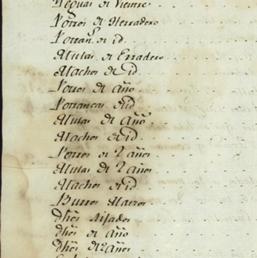 Yeguas de Vientre
Potros de Herradero
Potran.s de id
Mulas de Erradero
Machos de id
Potros de año
Potrancas de id
Mulas de año
Machos de id
Potros de 2 años
Mulas de 2 años
Machos de id
Burros Maeros
Dhos
Dhos de año
Dhos de 2 años